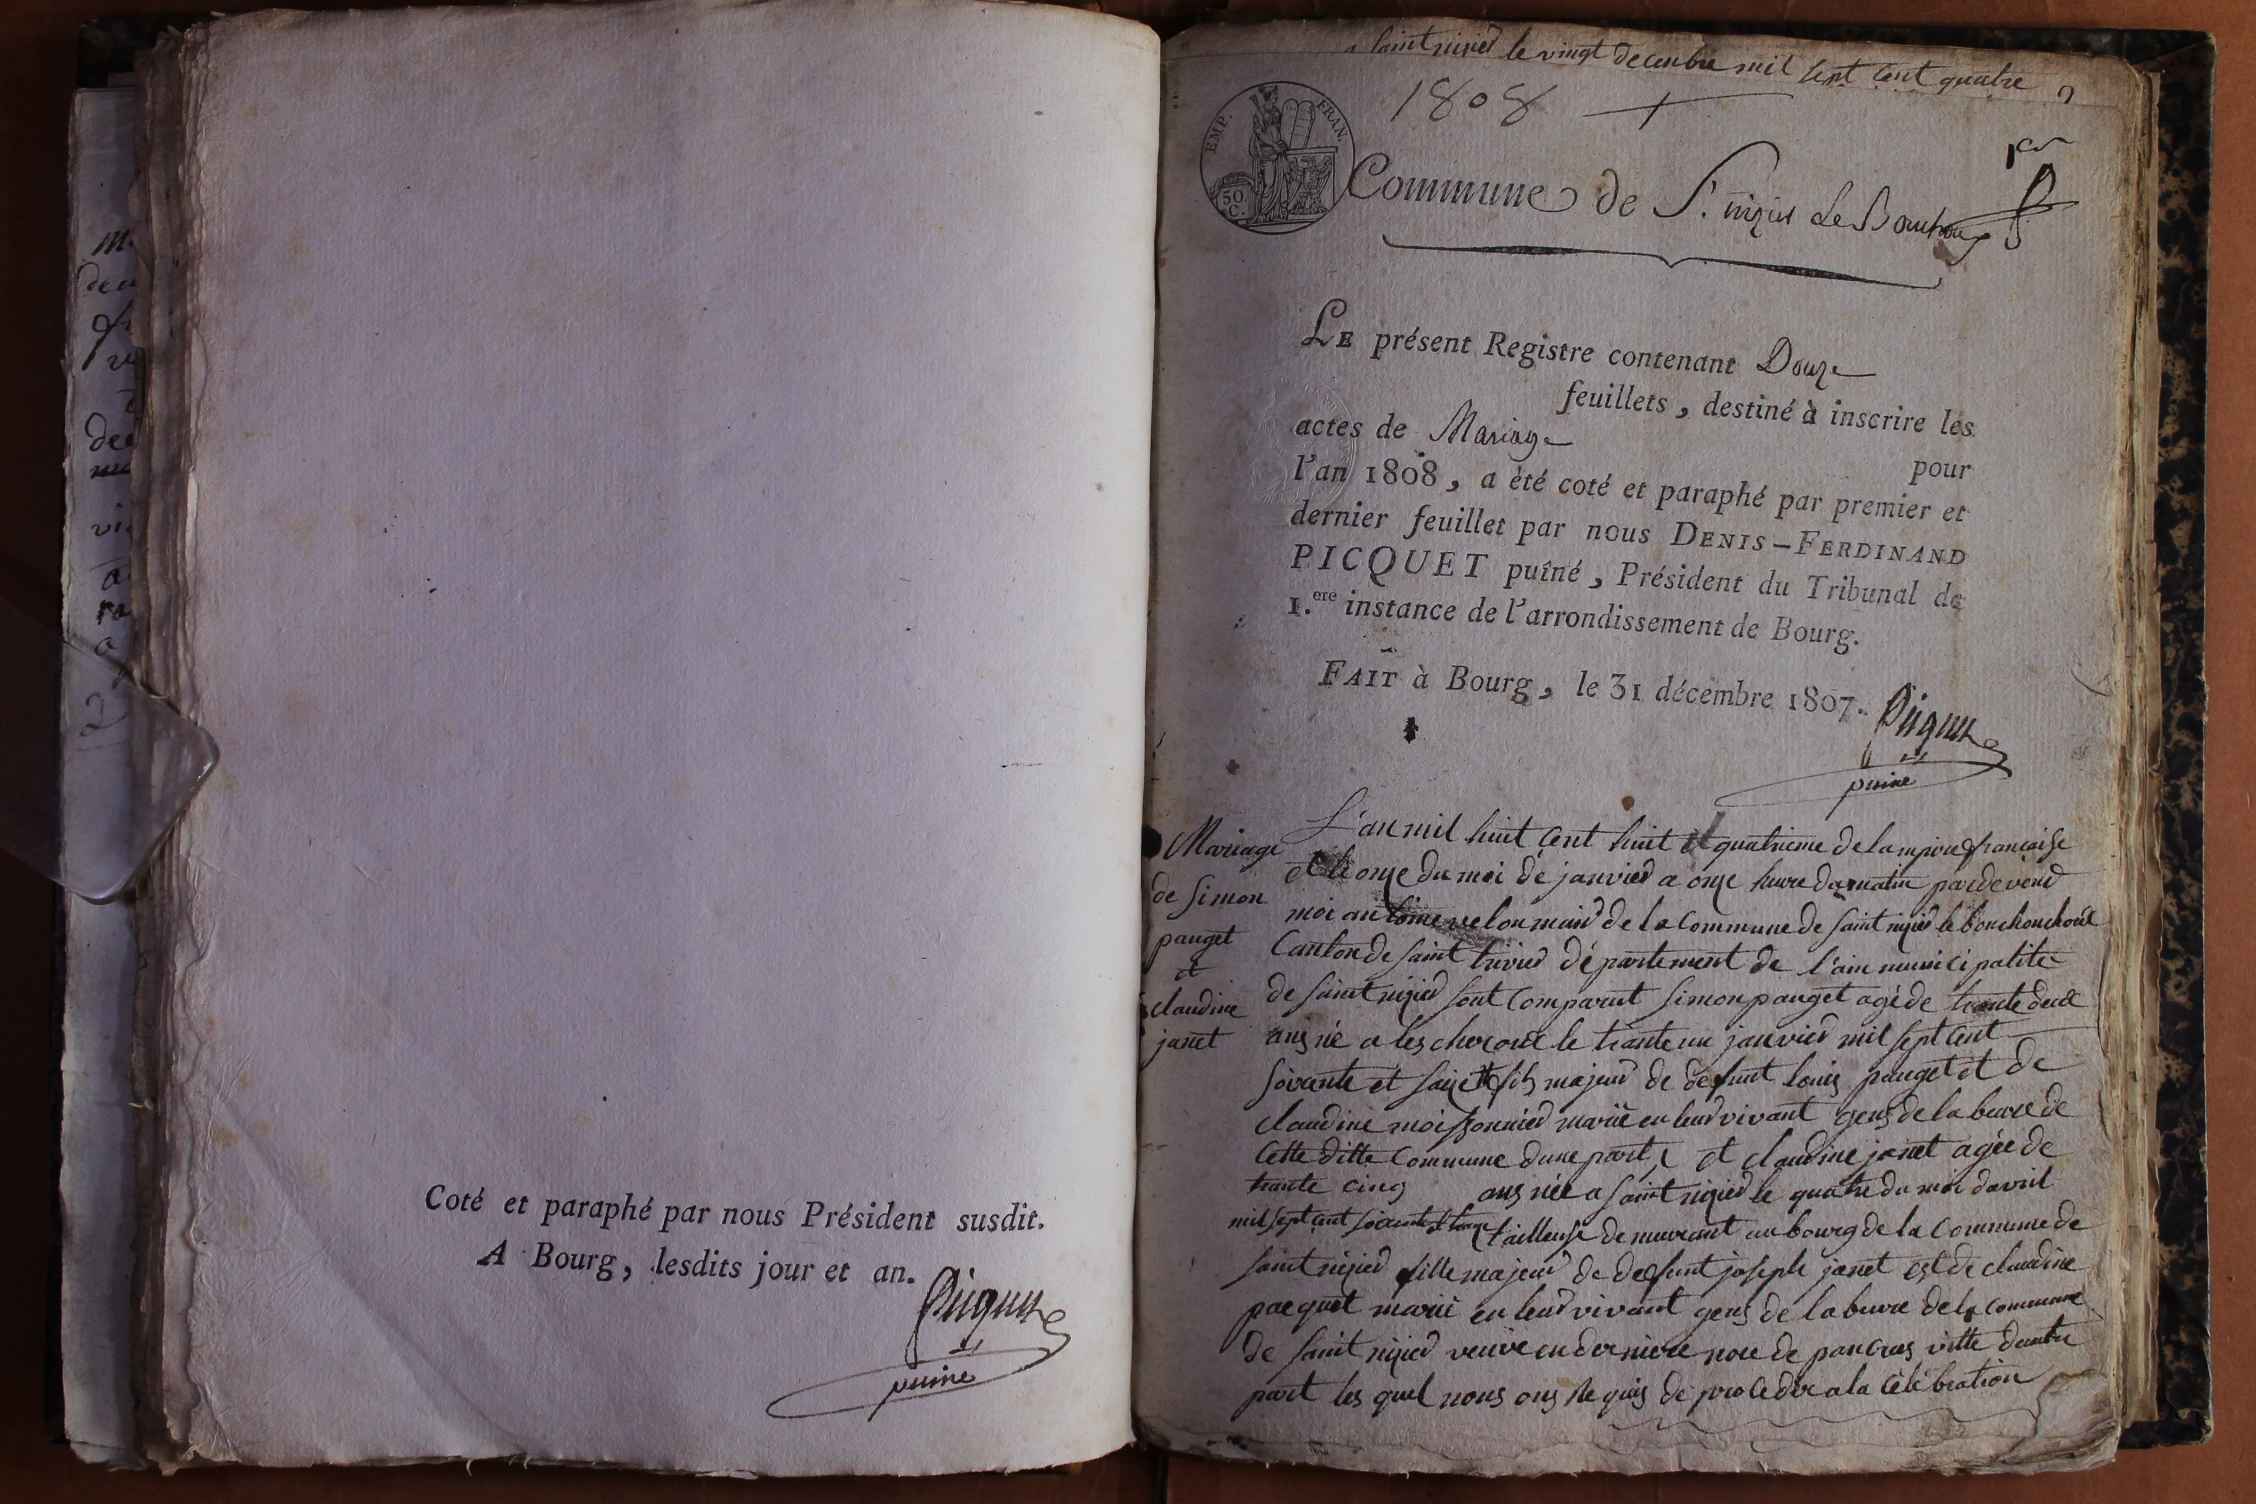 Coté et paraphé par nous Président susdit.
A Bourg, lesdits jour et an.
Picquet
puiné
a saint nizied le vingt decenbre mil sept cent quatre
1808
EMP. FRAN.
50 C.
1er
Commune de St. nizier le Bouchoux
LE présent Registre contenant Douze
feuillets, destiné à inscrire les
actes de Mariage pour
l'an 1808, a été coté et paraphé par premier et
dernier feuillet par nous DENIS-FERDINAND
PICQUET puîné, Président du Tribunal de
1.ere instance de l'arrondissement de Bourg.
FAIT à Bourg, le 31 décembre 1807.
Picquet
puiné
Mariage
de Simon
pauget
et
claudine
janet
L'an mil huit cent huit et quatrieme de lampire francaise
et le onze du moi de janvied a onze heure du matin pardevend
moi antoine velon maird de la commune de saint nizied le bouchouhoud
Canton de saint trivied département de l'ain municipalite
de saint nizied sont comparut simon pauget agé de trante deux
ans né a lescheroud le trante un janvied mil sept cent
soixante et saize fils majeud de defunt louis pauget et de
claudine moissonnied marié en leud vivant gens de labeure de
cette ditte commune dune part, et claudine janet agée de
trante cinq ans née a saint nizied le quatre du moi davril
mil sept cent soixante et tailleuse demeurant au bourg de la commune de
saint nizied fille majeud de defunt joseph janet est de claudine
pacquet marié en leud vivant gens de labeure de la commune
de saint nizied veuve en derniere nore de pancras vitte dautre
part les quel nous ons requis de proceder a la célébration